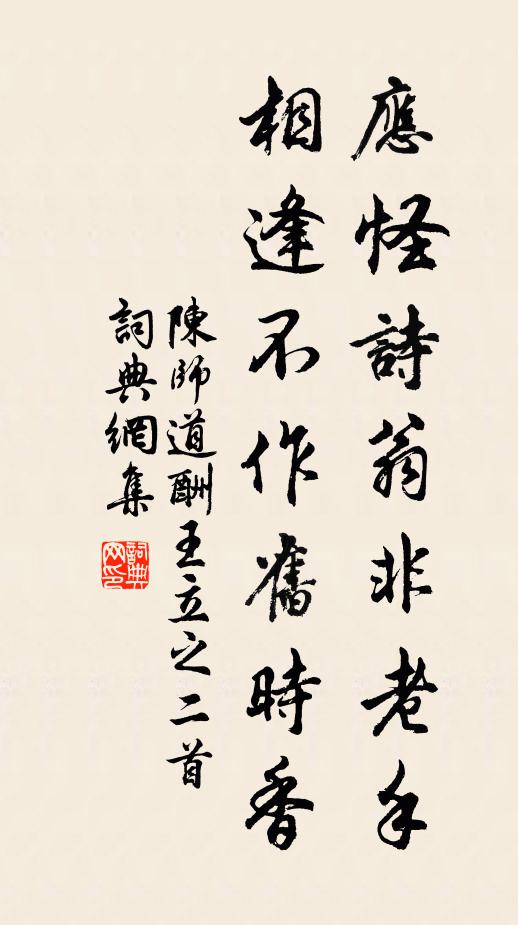 應怪詩翁非老手
相逢不作舊時香
陳師道酬王立之二首
詞典網集
詞典
网印